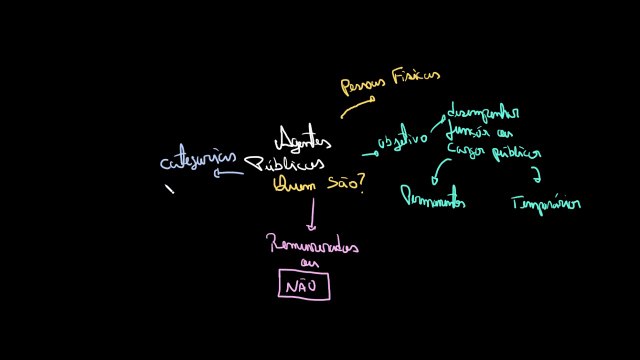 Pessoas Físicas
Agentes
Públicos
Quem são?
objetivo
desempenhar
função ou
cargo público
Permanentes
Temporários
categorias
Remunerados
ou
NÃO